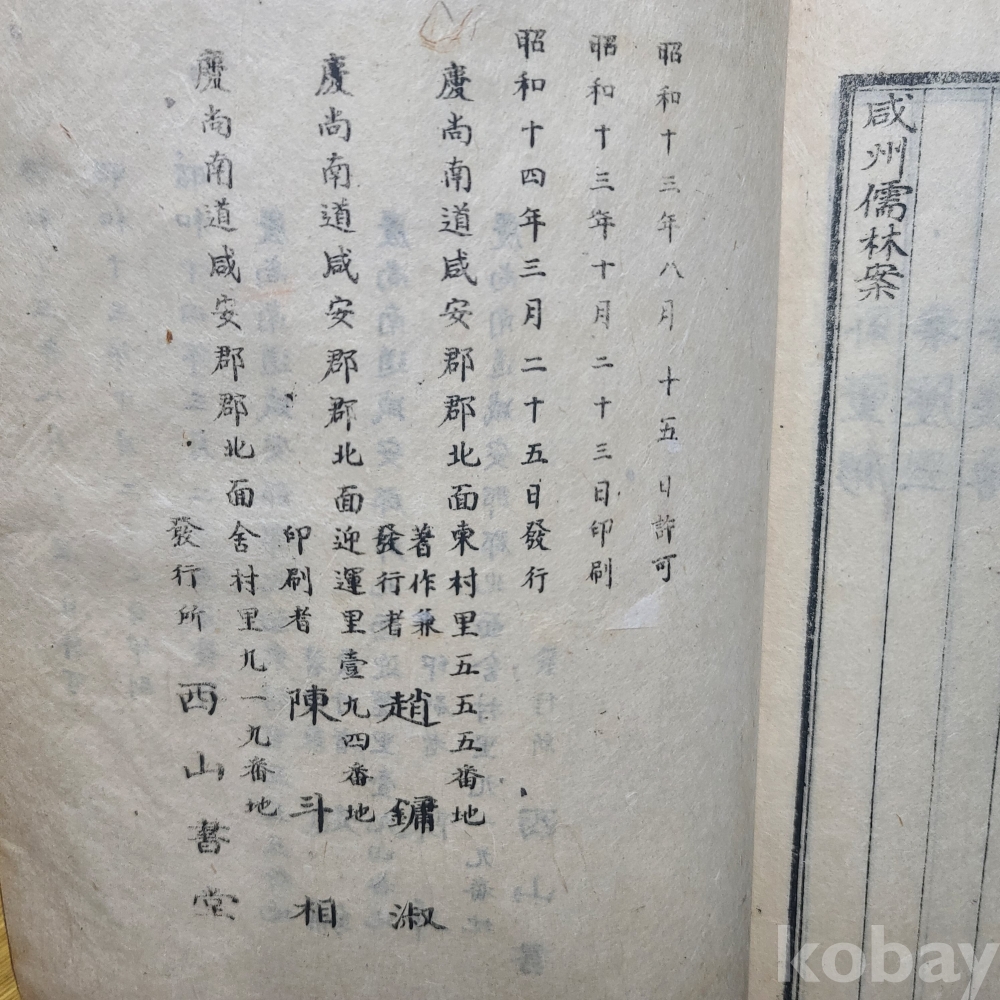 咸州儒林案
昭和十三年八月十五日許可
昭和十三年十月二十三日印刷
昭和十四年三月二十五日發行
慶尚南道咸安郡郡北面東村里五五五番地
著作兼
發行者 趙鏞淑
慶尚南道咸安郡郡北面迎運里壹九四番地
印刷者 陳斗相
慶尚南道咸安郡郡北面舍村里九一九番地
發行所 西山書堂
kobay